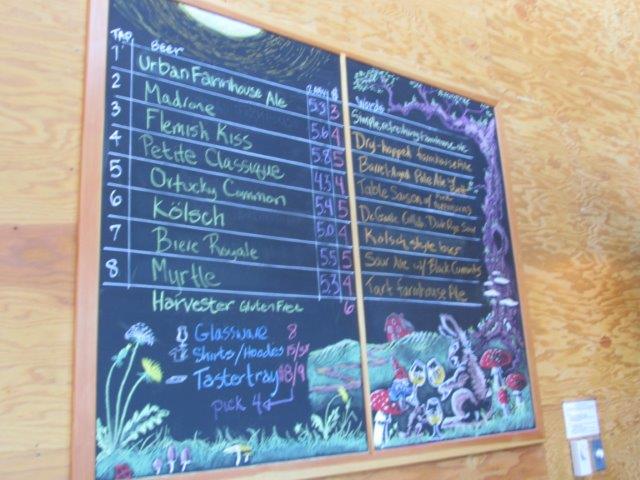 TAP Beer %ABV $ Words
1 Urban Farmhouse Ale 5.3 3 Simple, refreshing farmhouse ale
2 Madrone 5.6 4 Dry-hopped farmhouse Ale
3 Flemish Kiss 5.8 5 Barrel Aged Pale Ale w/ Brett
4 Petite Classique 4.3 4 Table Saison w/
5 Ortucky Common 5.4 5 Dark Rye Sour
6 Kölsch 5.0 4 Kolsch style beer
7 Biere Royale 5.5 5 Sour Ale w/ Black Currants
8 Myrtle 5.3 4 Tart farmhouse Ale
Harvester Gluten Free 6
Glassware 8
Shirts/Hoodies 15/35
Taster tray 8/9
pick 4